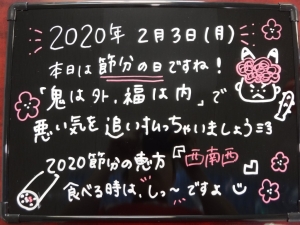 2020年 2月3日(月)
本日は節分の日ですね!
「鬼は外、福は内」で
悪い気を追い払っちゃいましょう
2020節分の恵方『西南西』
食べる時は、しっ〜ですよ